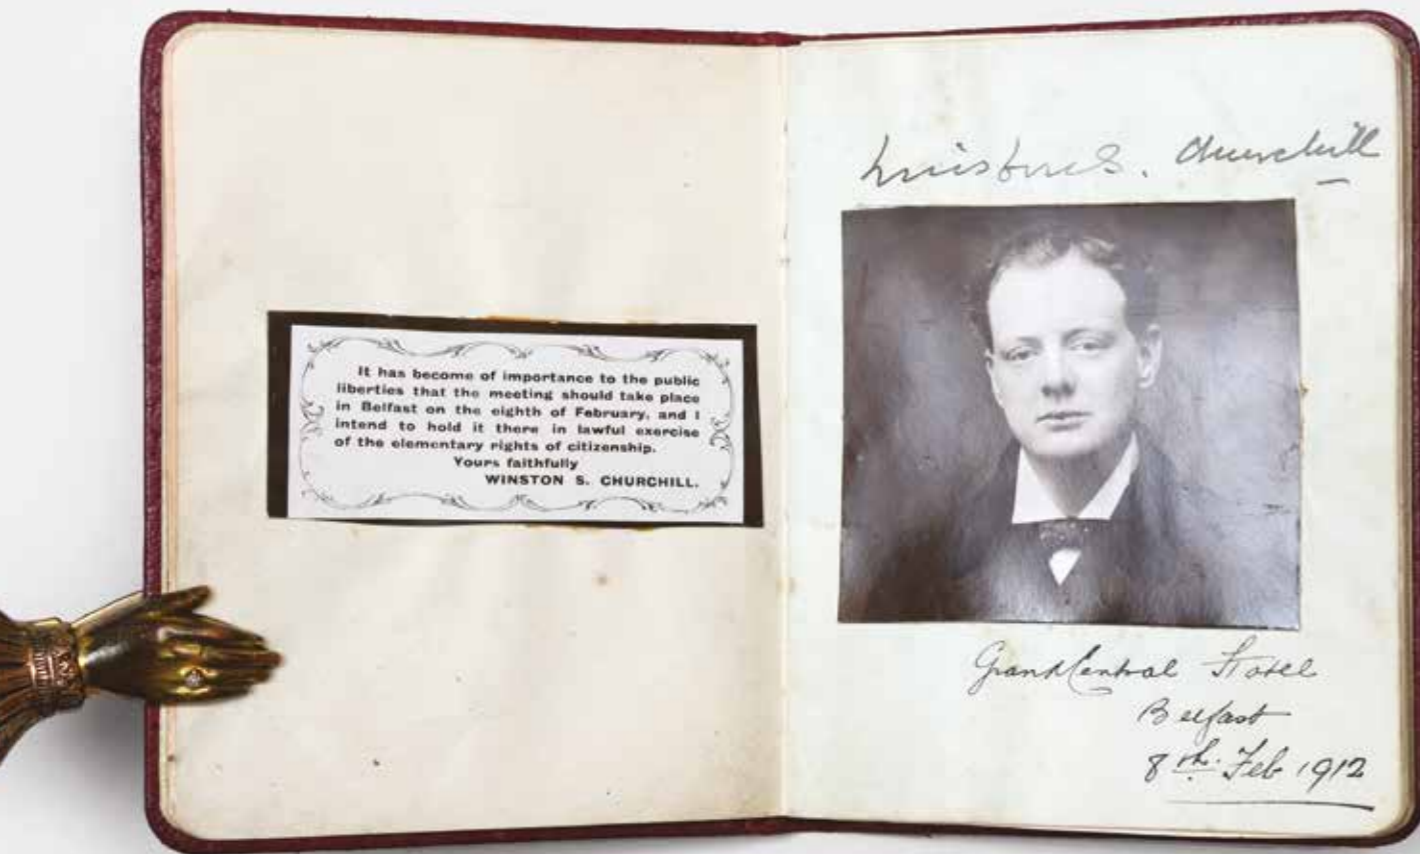 It has become of importance to the public
liberties that the meeting should take place
in Belfast on the eighth of February, and I
intend to hold it there in lawful exercise
of the elementary rights of citizenship.
Yours faithfully
WINSTON S. CHURCHILL.
Winston S. Churchill
Grand Central Hotel
Belfast
8th. Feb 1912